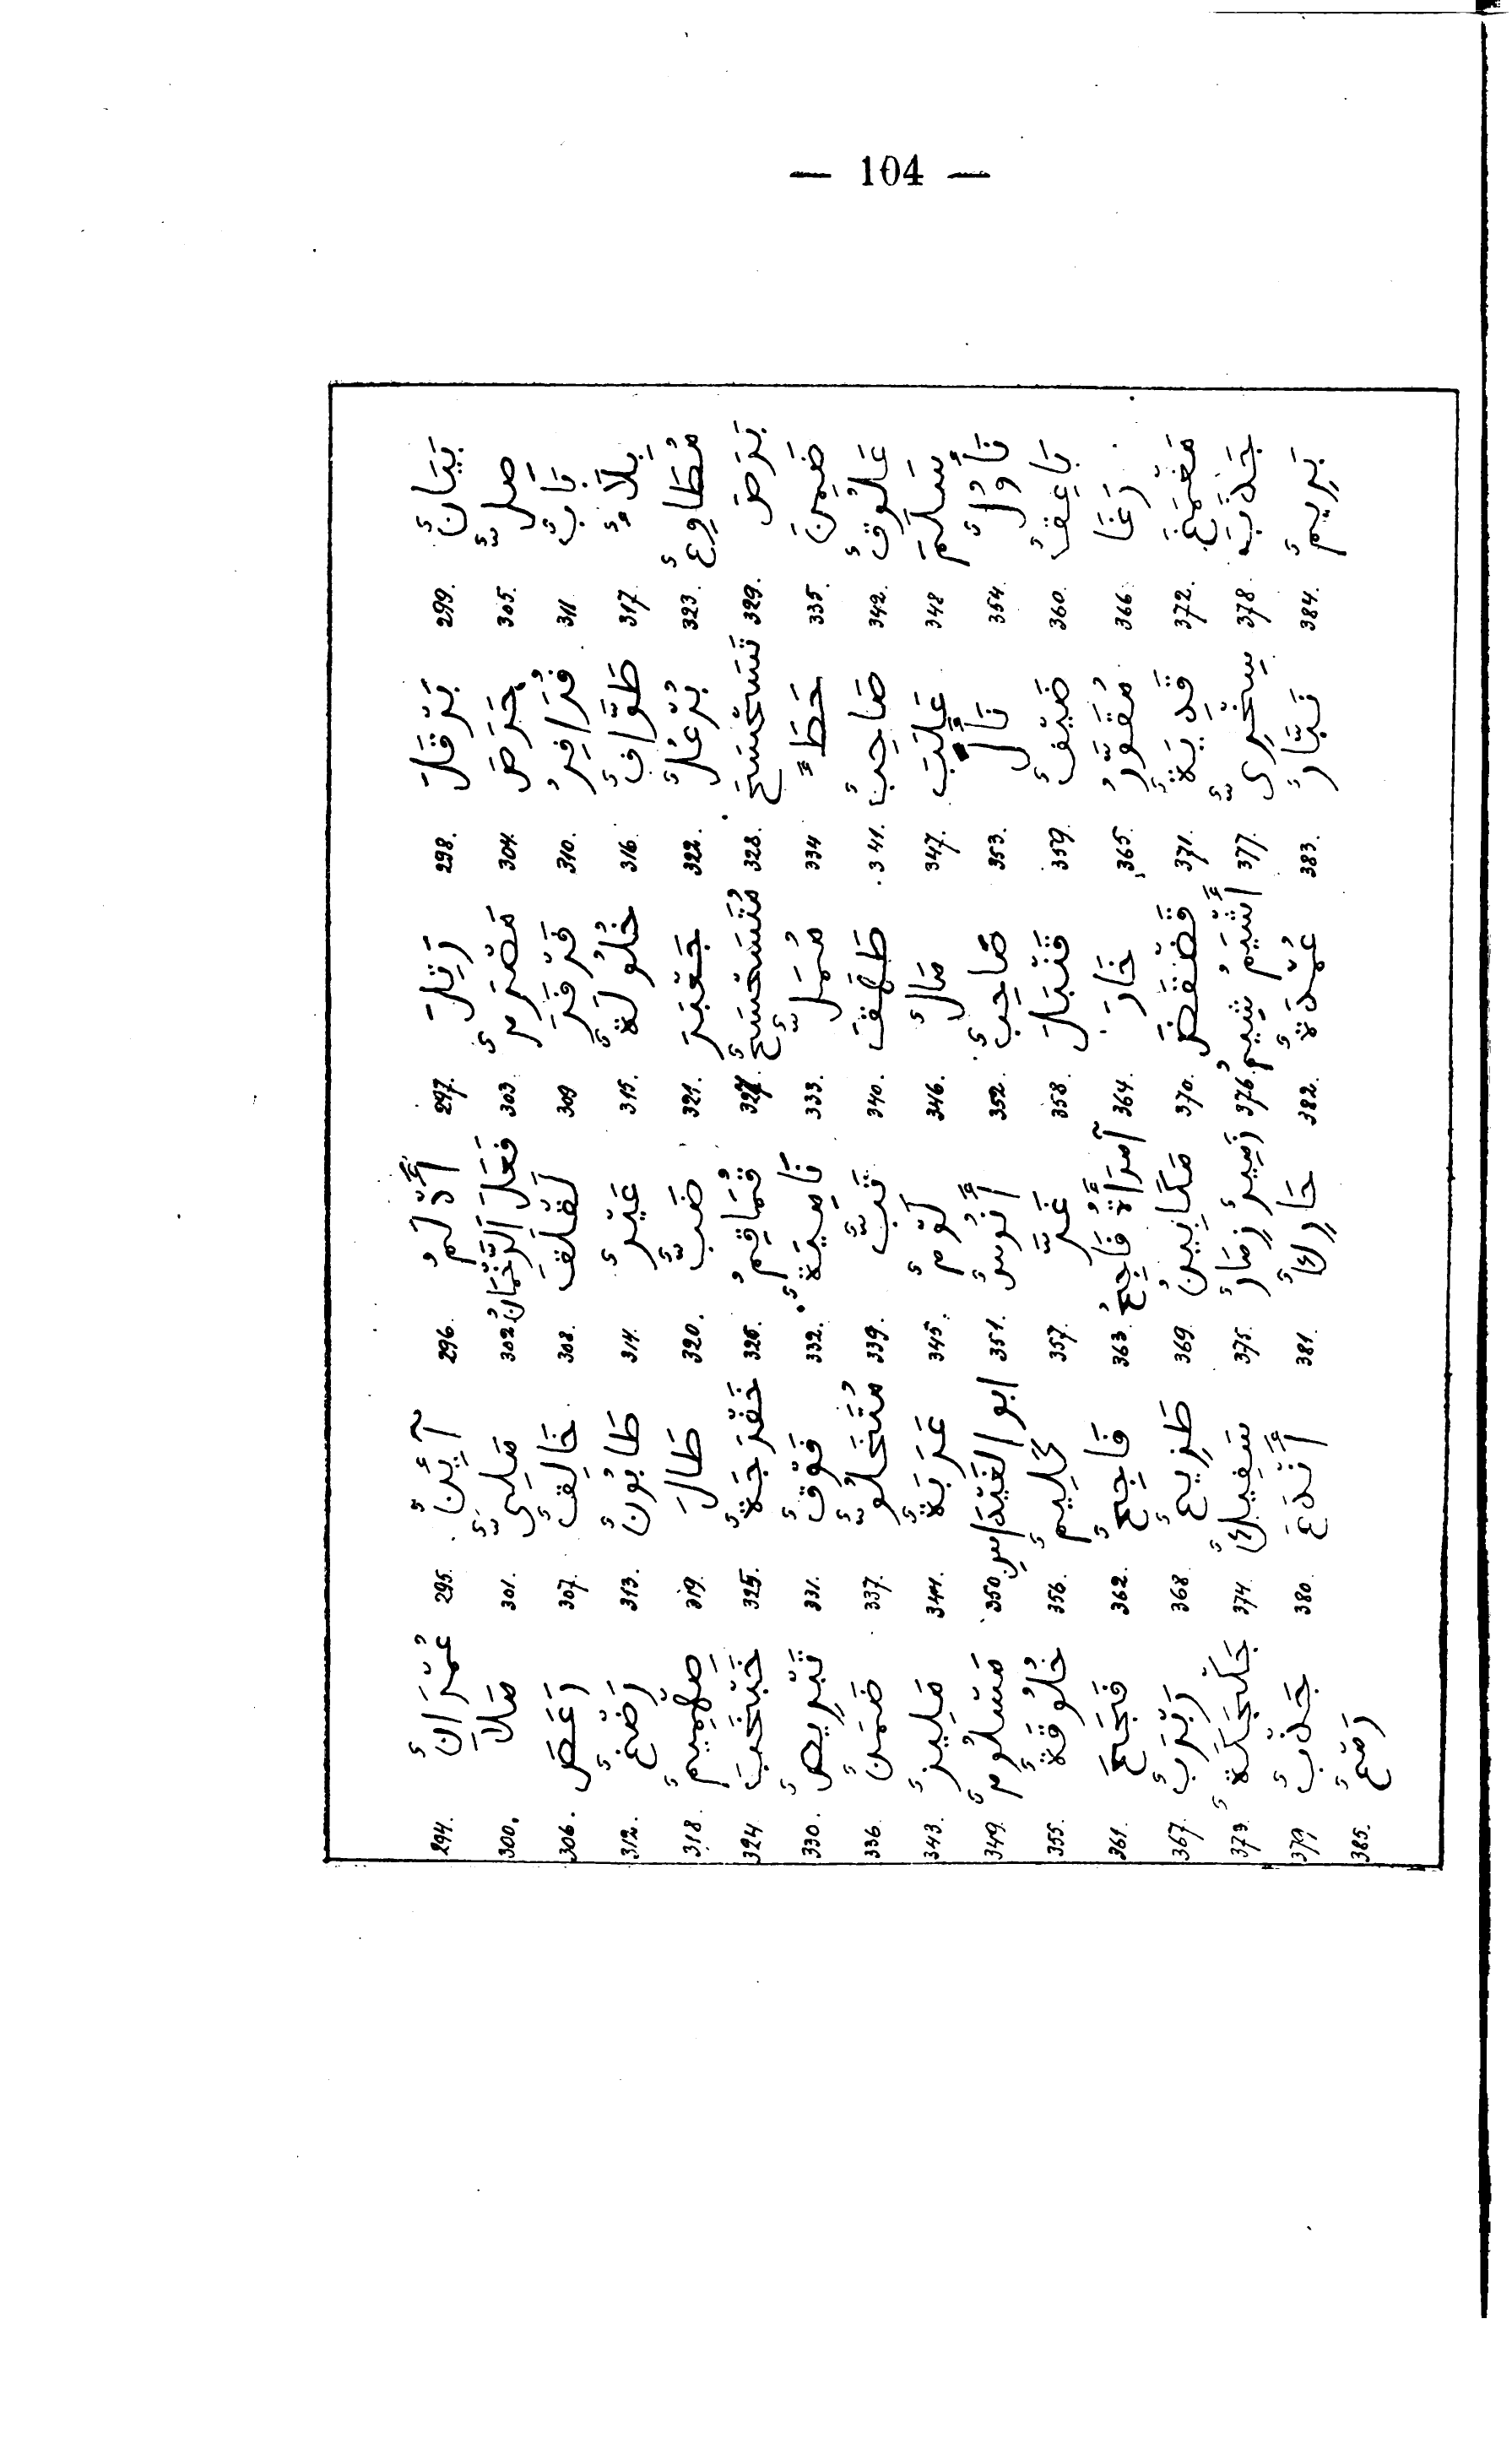 — 104 —
294. عُمْرَانٌ 295. آيِنٌ 296. أَدْلَمُ 297. رَتِلَ 298. بَرْقَلَ 299. بَيَانٌ
300. مَلَأَ 301. مَلِيٌّ 302. فَعَلَ التَّرْجُمَانُ 303. مَصْرَمٌ 304. حَرَصَ 305. صِلٌّ
306. رَعَصَ 307. خَالِفٌ 308. لَقْلَقَ 309. قَرْقَرَ 310. فُرَافِرُ 311. بَابٌ
312. رَضْخٌ 313. طَابُونٌ 314. عَيْرٌ 315. خُلُولَةٌ 316. طَوَّافٌ 317. بَلَاءٌ
318. صِهْمِيمٌ 319. طَالَ 320. ضَبٌّ 321. جَعْبَرَ 322. بُرْعُلٌ 323. مُطَاوِعٌ
324. خَبْخَبَ 325. خَفْرَجَةٌ 326. قُمَاقِمُ 327. مُتَسَحْسِحٌ 328. تَسَحْسَحَ 329. بَرَضَ
330. تَبْرِيصٌ 331. فَوْقٌ 332. نَاصِيَةٌ 333. مُمَلٌّ 334. حَطَأَ 335. ضَمِنَ
336. ضَمَنٌ 337. مُتَخَلُّوٌ 339. تَبٌّ 340. طَهَقَ 341. صَاحِبٌ 342. عَلُوقٌ
343. مَلِيزٌ 344. عَرَبَةٌ 345. لَوْمٌ 346. مَالٌ 347. عَلَبَ 348. سَلَمَ
349. مَسْلُومٌ 350. ابو الغَيْدَاسِ 351. أَنُوسٌ 352. صَاحِبٌ 353. نَأَلَ 354. تَأَوُّلٌ
355. خُلُوقَةٌ 356. حَلِيمٌ 357. غَرَّ 358. قَنْبَلَ 359. ضَيْفٌ 360. بَاعِقٌ
361. فَجَعَ 362. فَاجِعٌ 363. آمْرَأَةٌ فَاجِعٌ 364. خَارَ 365. مُقَوَّرُ 366. رَغَا
367. رَبْرَبٌ 368. طَزِيعٌ 369. مَكَابِينُ 370. قَضْقَضَ 371. قَدِيَةٌ 372. مَغْمَغَ
373. جَكْجَكَةٌ 374. سَفِيكٌ 375. زَمِيرٌ زِمَارٌ 376. أَشْيَمُ شِيمٌ 377. سِخْرِيٌّ 378. جَذَبَ
379. جَذْبٌ 380. أَنْدَعَ 381. حَارِكٌ 382. عُمْدَةٌ 383. نَبَّارٌ 384. بَرِيمٌ
385. رَمْعٌ